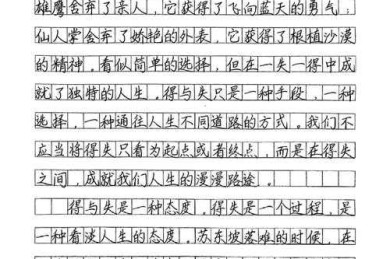 雄鹰舍弃了亲人，它获得了飞向蓝天的勇气；
仙人掌舍弃了娇艳的外表，它获得了根植沙漠
的精神。看似简单的选择，但在一失一得中成
就了独特的人生。得与失只是一种手段，一种
选择，一种通往人生不同道路的方式。我们不
应当将得失只看为起点或者终点，而是在得失
之间，成就我们人生的漫漫路途。
得与失是一种态度。得失是一个过程，是
一种看淡人生的态度。苏东坡落难的时候，在